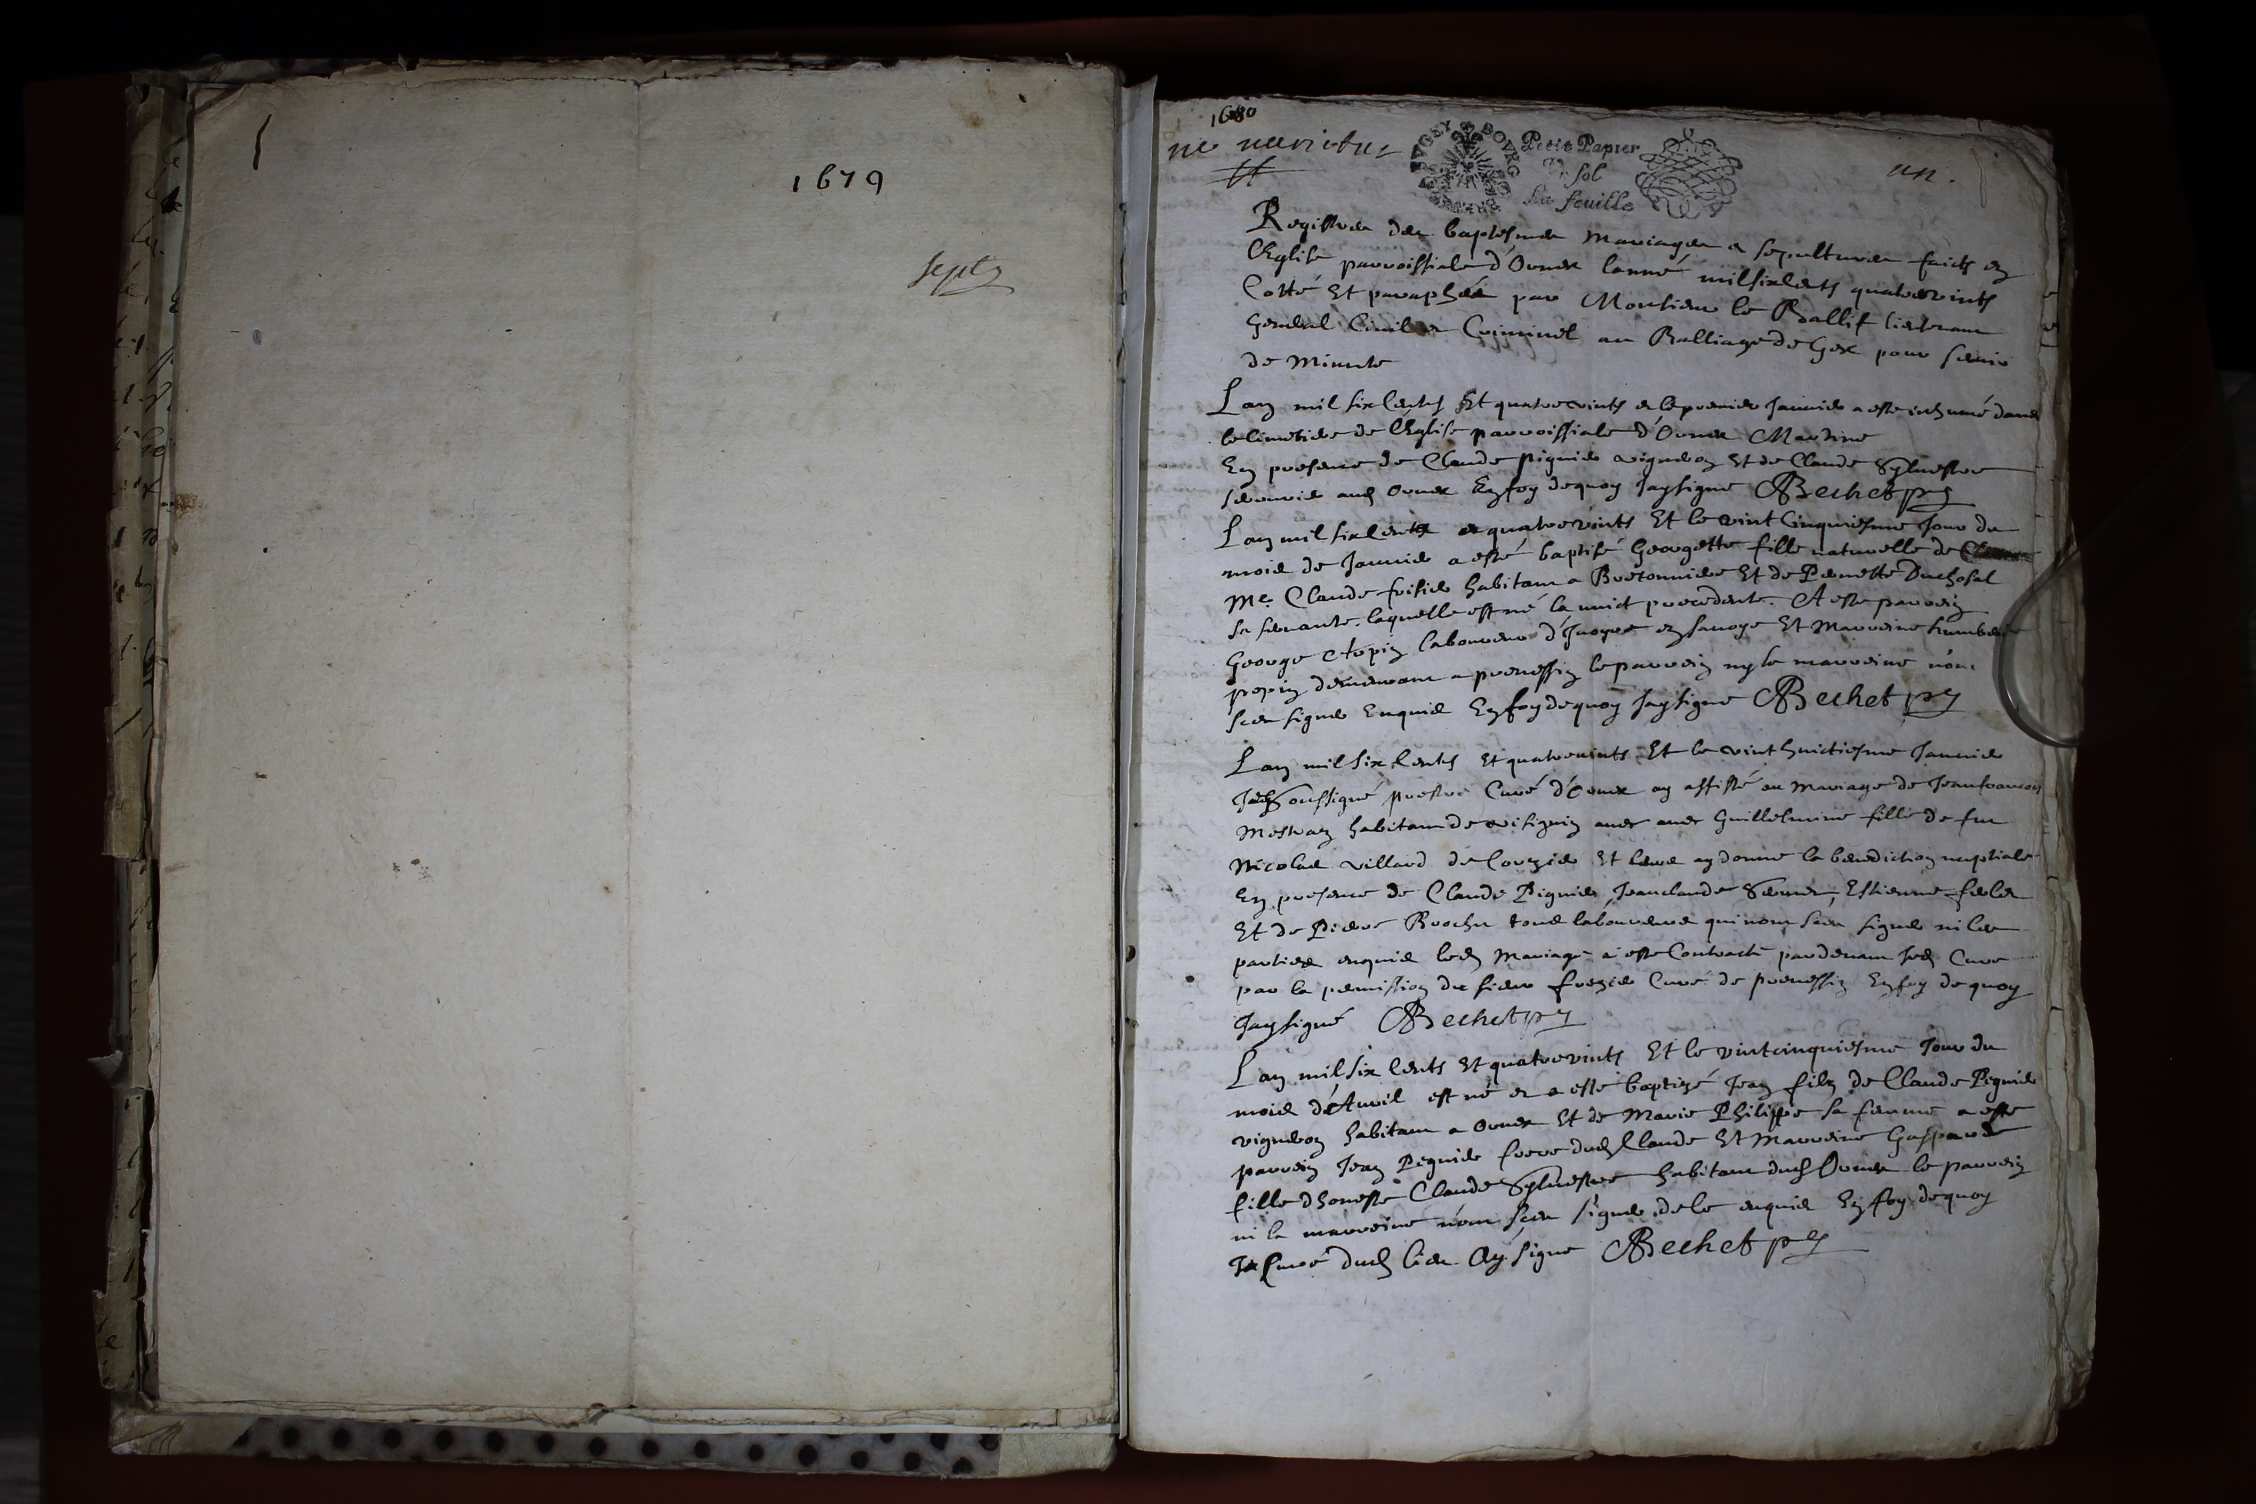 1679
sept
1680
ne varietur
BOVRG
Petit Papier
sol
La feuille
un.
Registre des baptesmes mariages et sepultures faicts en
l'Eglise parroissiale d'Ornex l'anné mil six cents quatre vints
Cotté Et paraphée par Monsieur le Ballif lieutenant
General Civil et Criminel au Balliage de Gex pour servir
de Minute
L'an mil six cents Et quatre vints et le premier Janvier a esté inhumé dans
le cimetiere de l'Eglise parroissiale d'Ornex Martine
En presence de Claude Piguier vigneron Et de Claude Sylvestre
aud Ornex En foy de quoy Jay signé Bechet
L'an mil six cents et quatre vints Et le vint cinquiesme Jour du
mois de Janvier a esté baptisé Georgette fille naturelle de
Me. Claude frisier habitant a Bretonniere Et de Pernette Duchosal
sa servante, laquelle est né la nuict precedente. A este parrein
George laboureur en Savoye Et Marreine humberte
pepin demeurant a prevessin le parrein ny la marreine n'ont
sceu signer Enquis En foy de quoy Jay signé Bechet
L'an mil six cents Et quatre vints Et le vint huictiesme Janvier
Je soussigné prestre Curé d'Ornex ay assisté au Mariage de Jean francois
Mestraz habitant de avec avec Guillelmine fille de feu
Nicolas Villard de Et leur ay donné la benediction nuptiale
En presence de Claude Piguier, Jean claude Estienne
Et de Pierre Brochu tous laboureurs qui nont sceu signer ni les
parties enquis led Mariage a esté Contracté par devant Curé
par la permission du sieur frezier Curé de prevessin En foy de quoy
Jay signé Bechet
L'an mil six cents Et quatre vints Et le vint cinquiesme Jour du
mois d'Avril est né et a esté baptizé Jean filz de Claude Piguier
vigneron habitant a Ornex Et de Marie Philippe sa femme a esté
parrein Jean Piguier frere dud Claude Et Marreine Gasparde
fille d'honeste Claude Sylvestre habitant dud Ornex le parrein
ni la marreine n'ont sceu signer de ce enquis En foy de quoy
Je Curé dud lieu Ay signé Bechet